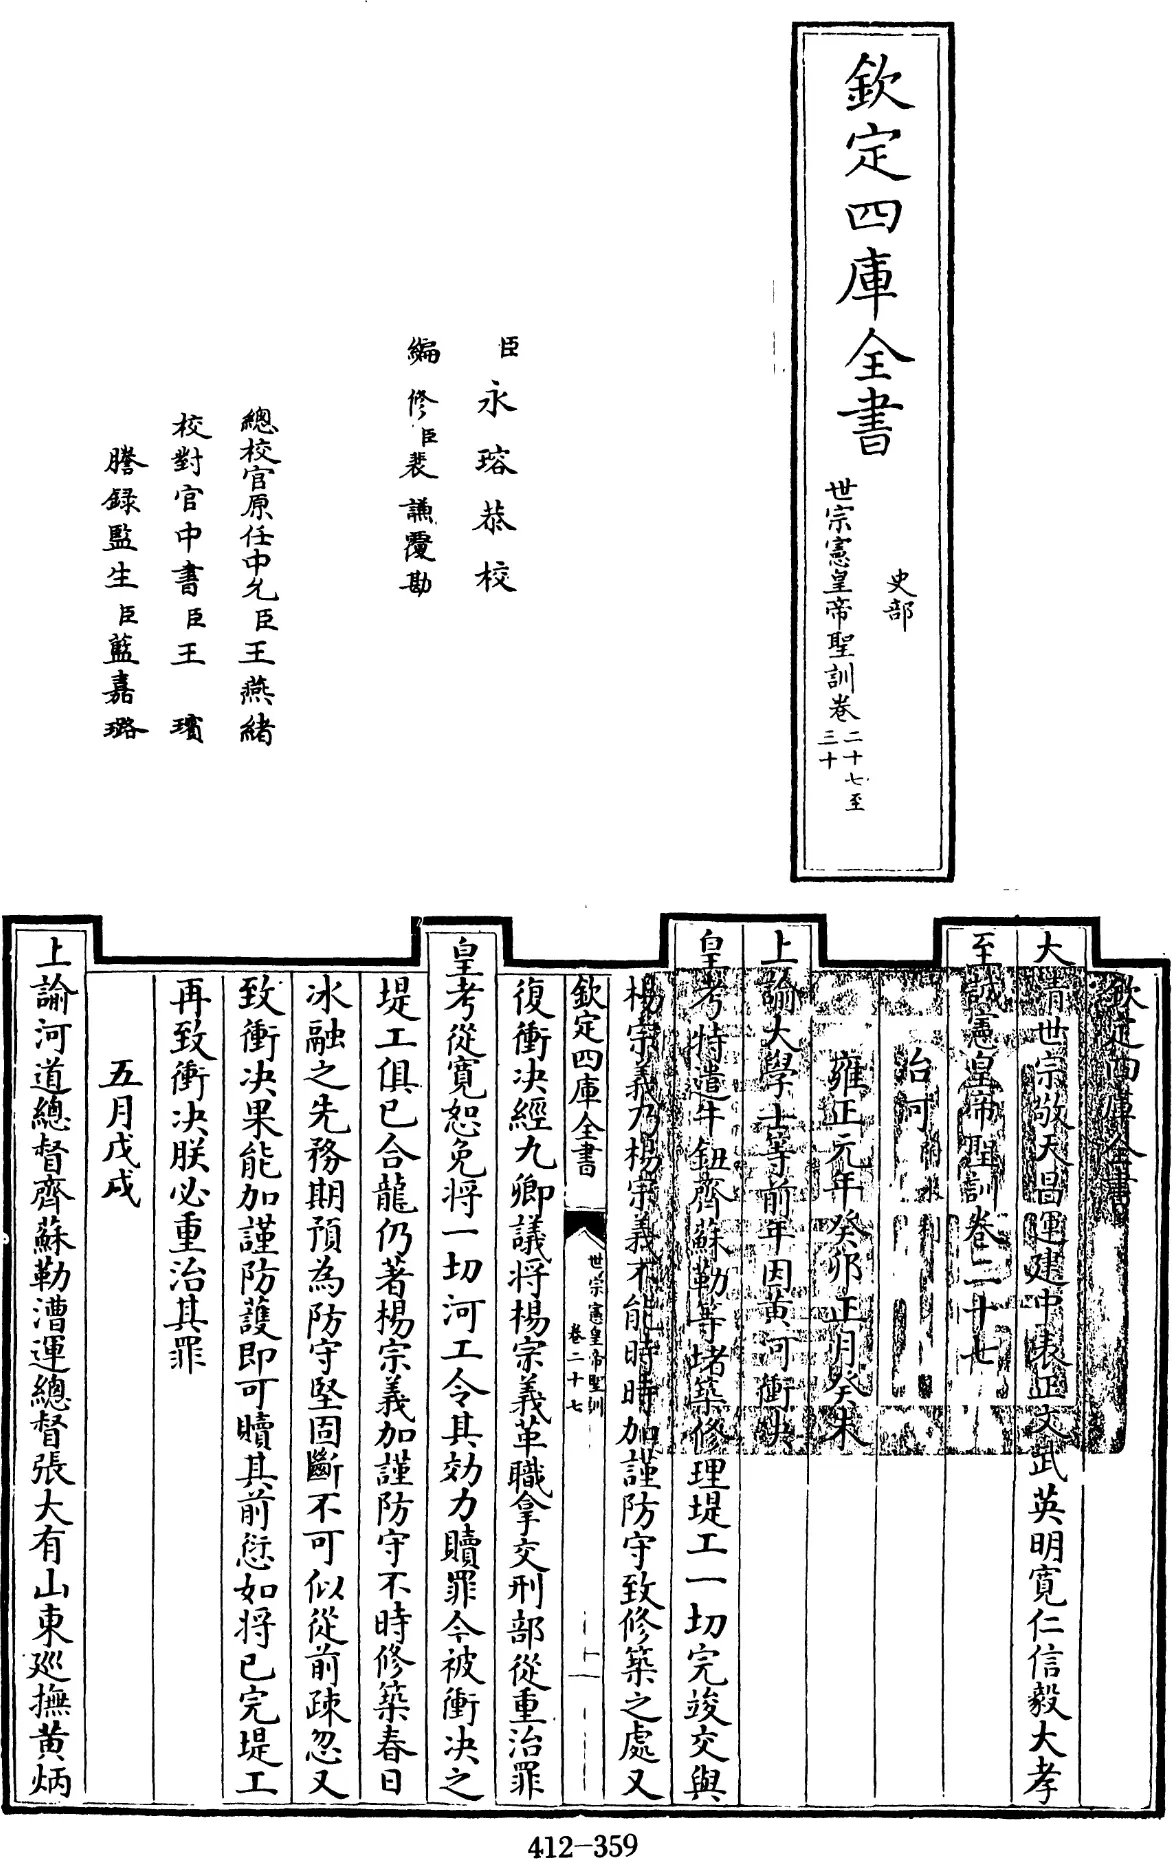 欽定四庫全書
史部
世宗憲皇帝聖訓卷二十七至三十
臣永瑢恭校
編修臣裴謙覆勘
總校官原任中允臣王燕緒
校對官中書臣王璸
謄録監生臣藍嘉璐
欽定四庫全書
大清世宗敬天昌運建中表正文武英明寛仁信毅大孝
至誠憲皇帝聖訓卷二十七
治河
雍正元年癸卯正月癸未
上諭大學士等前年因黄河衝決
皇考特遣牛鈕齊蘇勒等堵築修理堤工一切完竣交與
楊宗義乃楊宗義不能時時加謹防守致修築之處又
欽定四庫全書
世宗憲皇帝聖訓
卷二十七
一
復衝决經九卿議將楊宗義革職拿交刑部從重治罪
皇考從寛恕免將一切河工令其効力贖罪今被衝决之
堤工俱已合龍仍著楊宗義加謹防守不時修築春日
冰融之先務期預為防守堅固斷不可似從前疎忽又
致衝决果能加謹防護即可贖其前愆如將已完堤工
再致衝决朕必重治其罪
五月戊戌
上諭河道總督齊蘇勒漕運總督張大有山東廵撫黄炳
412-359